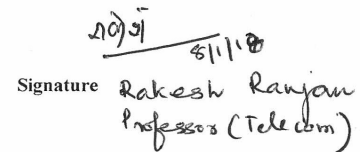 8/1/18
Signature Rakesh Ranjan
Professor (Telecom)